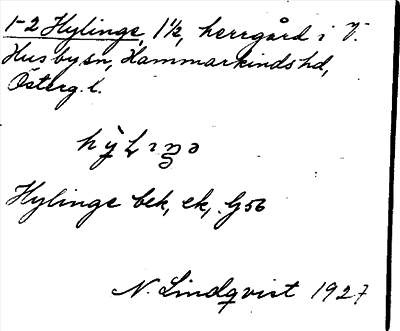 1-2 Hylinge, 1½, herrgård i V.
Husby sn, Hammarkinds hd,
Österg. l.
Hylinge bek, ek, G 56
N. Lindqvist 1927